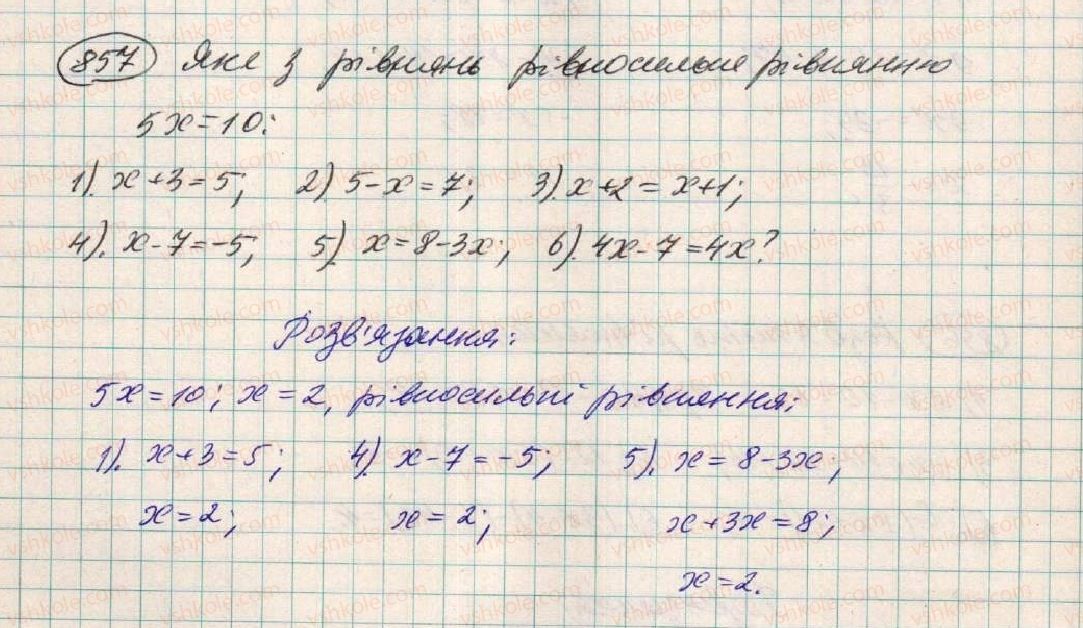 857 Яке з рівнянь рівносильне рівнянню
5x=10:
1). x+3=5; 2). 5-x=7; 3). x+2=x+1;
4). x-7=-5; 5). x=8-3x; 6). 4x-7=4x?
Розв'язання:
5x=10; x=2, рівносильні рівняння:
1). x+3=5; 4). x-7=-5; 5). x=8-3x;
x=2; x=2; x+3x=8;
x=2.